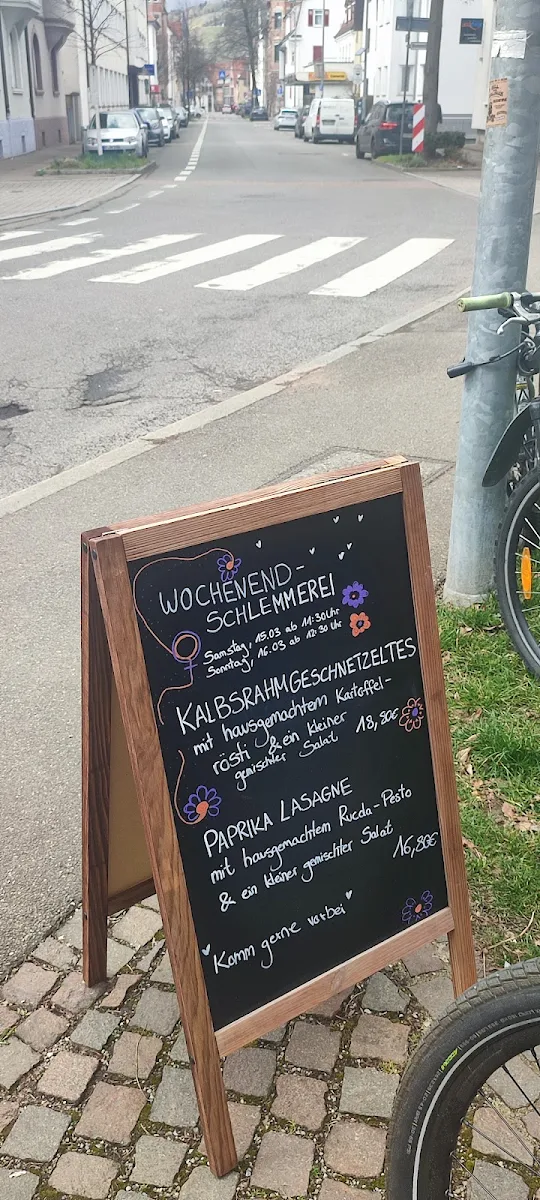 WOCHENEND-
SCHLEMMEREI
Samstag, 15.03 ab 11:30Uhr
Sonntag, 16.03 ab 12:30 Uhr
KALBSRAHMGESCHNETZELTES
mit hausgemachtem Kartoffel-
rösti & ein kleiner
gemischter Salat 18,80€
PAPRIKA LASAGNE
mit hausgemachtem Rucola-Pesto
& ein kleiner gemischter Salat
16,80€
Komm gerne vorbei